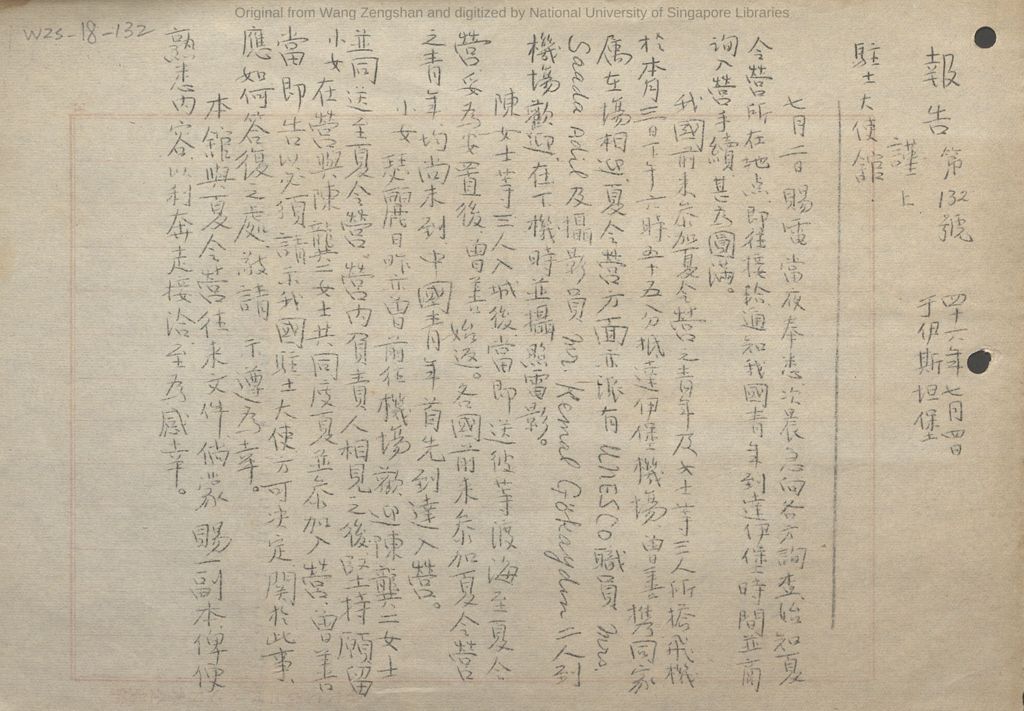 Original from Wang Zengshan and digitized by National University of Singapore Libraries
WZS-18-132
報告 第132號
四十六年七月四日
于伊斯坦堡
謹上
駐土大使館
七月二日賜電當夜奉悉次晨急向各方詢查始知夏
令營所在地点即往接給通知我國青年到達伊堡時間並商
詢入營手續甚為圓滿。
我國前來參加夏令營之青年及女士等三人所搭飛機
於本月三日下午六時五十五分抵達伊堡機場、曾善携同家
属在場相迎夏令營方面亦派有UNESCO職員Mrs.
Saada Adil及攝影員Mr. Kemal Gökaydin二人到
機場歡迎在下機時並攝照電影。
陳女士等三人入城後當即送彼等渡海至夏令
營妥為安置後曾善始返。各國前來參加夏令營
之青年、均尚未到中國青年首先到達入營。
小女瑟麗日昨亦曾前往機場歡迎陳龔二女士
並同送至夏令營、營內負責人相見之後堅持願留
小女在營與陳龔二女士共同度夏並參加入營、曾善
當即告以必須請示我國駐土大使方可決定関於此事、
應如何答復之處、敬請 示遵為幸。
本館與夏令營往來文件、倘蒙 賜一副本俾便
熟悉內容以利奔走接洽至為感幸。